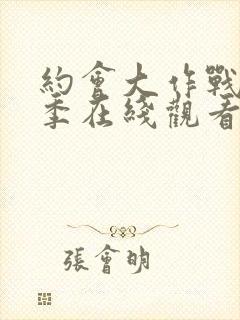 約會大作戰
季在綫觀看
張會明